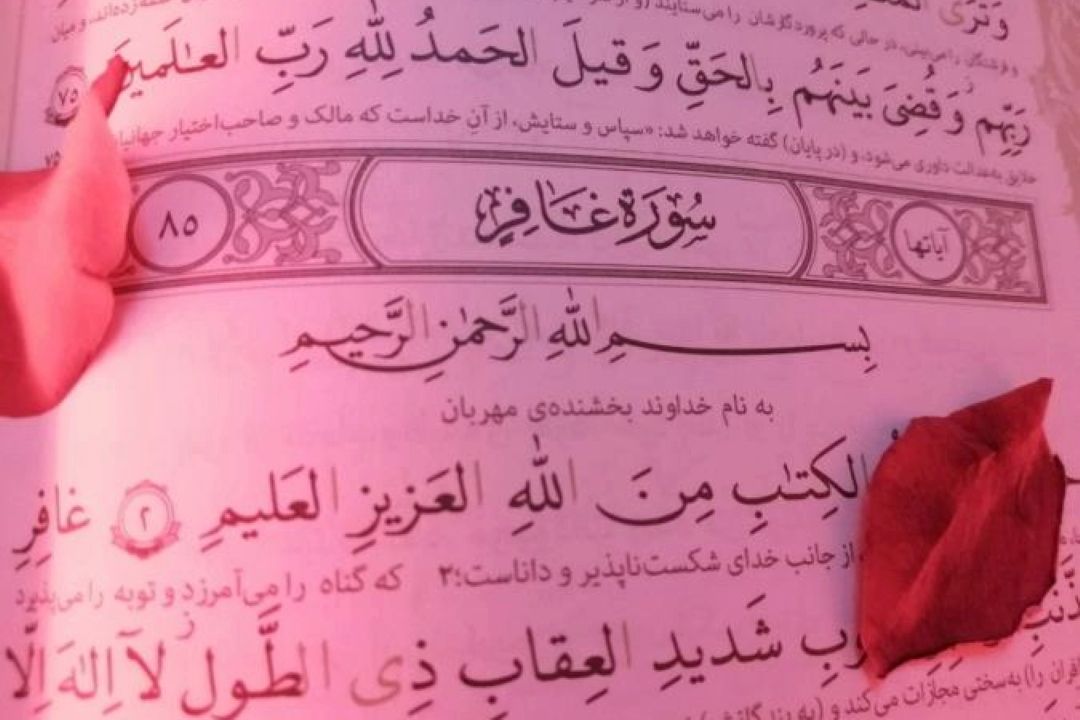 وَتَرَى
رَبِّهِم وَقُضِىَ بَينَهُم بِالحَقِّ وَقيلَ الحَمدُ لِلّٰهِ رَبِّ العـٰلَمينَ ٧٥
خلایق به‌عدالت داوری می‌شود، و (در پایان) گفته خواهد شد: «سپاس و ستایش، از آنِ خداست که مالک و صاحب‌اختیار
آیاتها سُورَة غَافِرٍ ٨٥
بِسمِ اللّٰهِ الرَّحمٰنِ الرَّحيمِ
به نام خداوند بخشنده‌ی مهربان
الكِتـٰبِ مِنَ اللّٰهِ العَزيزِ العَليمِ ٢ غافِرِ
از جانب خدای شکست‌ناپذیر و داناست؛۲ که گناه را می‌آمرزد و توبه را می‌پذیرد
شَديدِ العِقابِ ذِى الطَّولِ لآ اِلـٰهَ اِلّا
را) به‌سختی مجازات می‌کند و